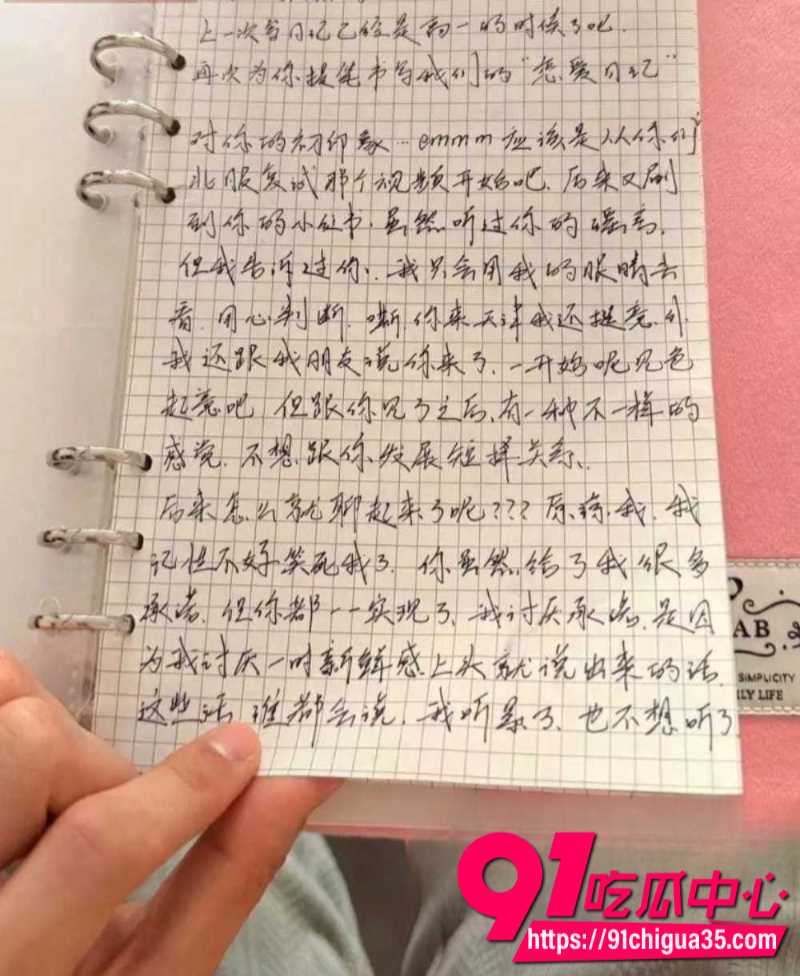 上一次写日记已经是高一的时候了吧.
再次为你提笔书写我们的“恋爱日记”
对你的初印象…emmm应该是从你的
北服复试那个视频开始吧、后来又刷
到你的小红书.虽然听过你的瑶言.
但我告诉过你、我只会用我的眼睛去
看.用心判断.嘶.你来天津我还挺意外
我还跟我朋友说你来了、一开始呢见色
起意吧 但跟你见了之后、有一种不一样的
感觉.不想跟你发展短择关系、
后来怎么就聊起来了呢???原谅我.我
记性不好笑死我了.你虽然给了我很多
承诺.但你都一一实现了.我讨厌承诺.是因
为我讨厌一时新鲜感上头就说出来的话.
这些话谁都会说.我听累了、也不想听了
AB
SIMPLICITY
LY LIFE
91吃瓜中心
https://91chigua35.com